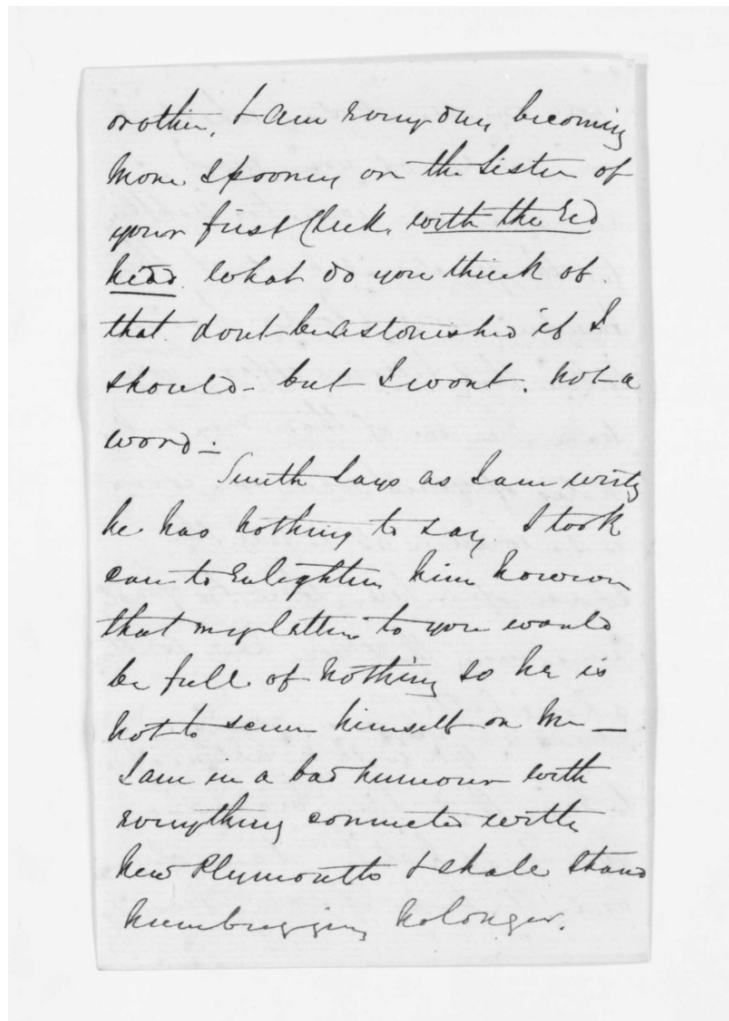 or other, & am every day becoming
more spooney on the Sister of
your first Clerk, with the red
head. What do you think of
that. dont be astonished if I
should - but I wont. not a
word -
Smith says as I am writg
he has nothing to say I took
care to enlighten him however
that my letter to you would
be full of nothing so he is
not to screen himself on me —
I am in a bad humour with
everything connected with
New Plymouth & shall stand
humbugging no longer.